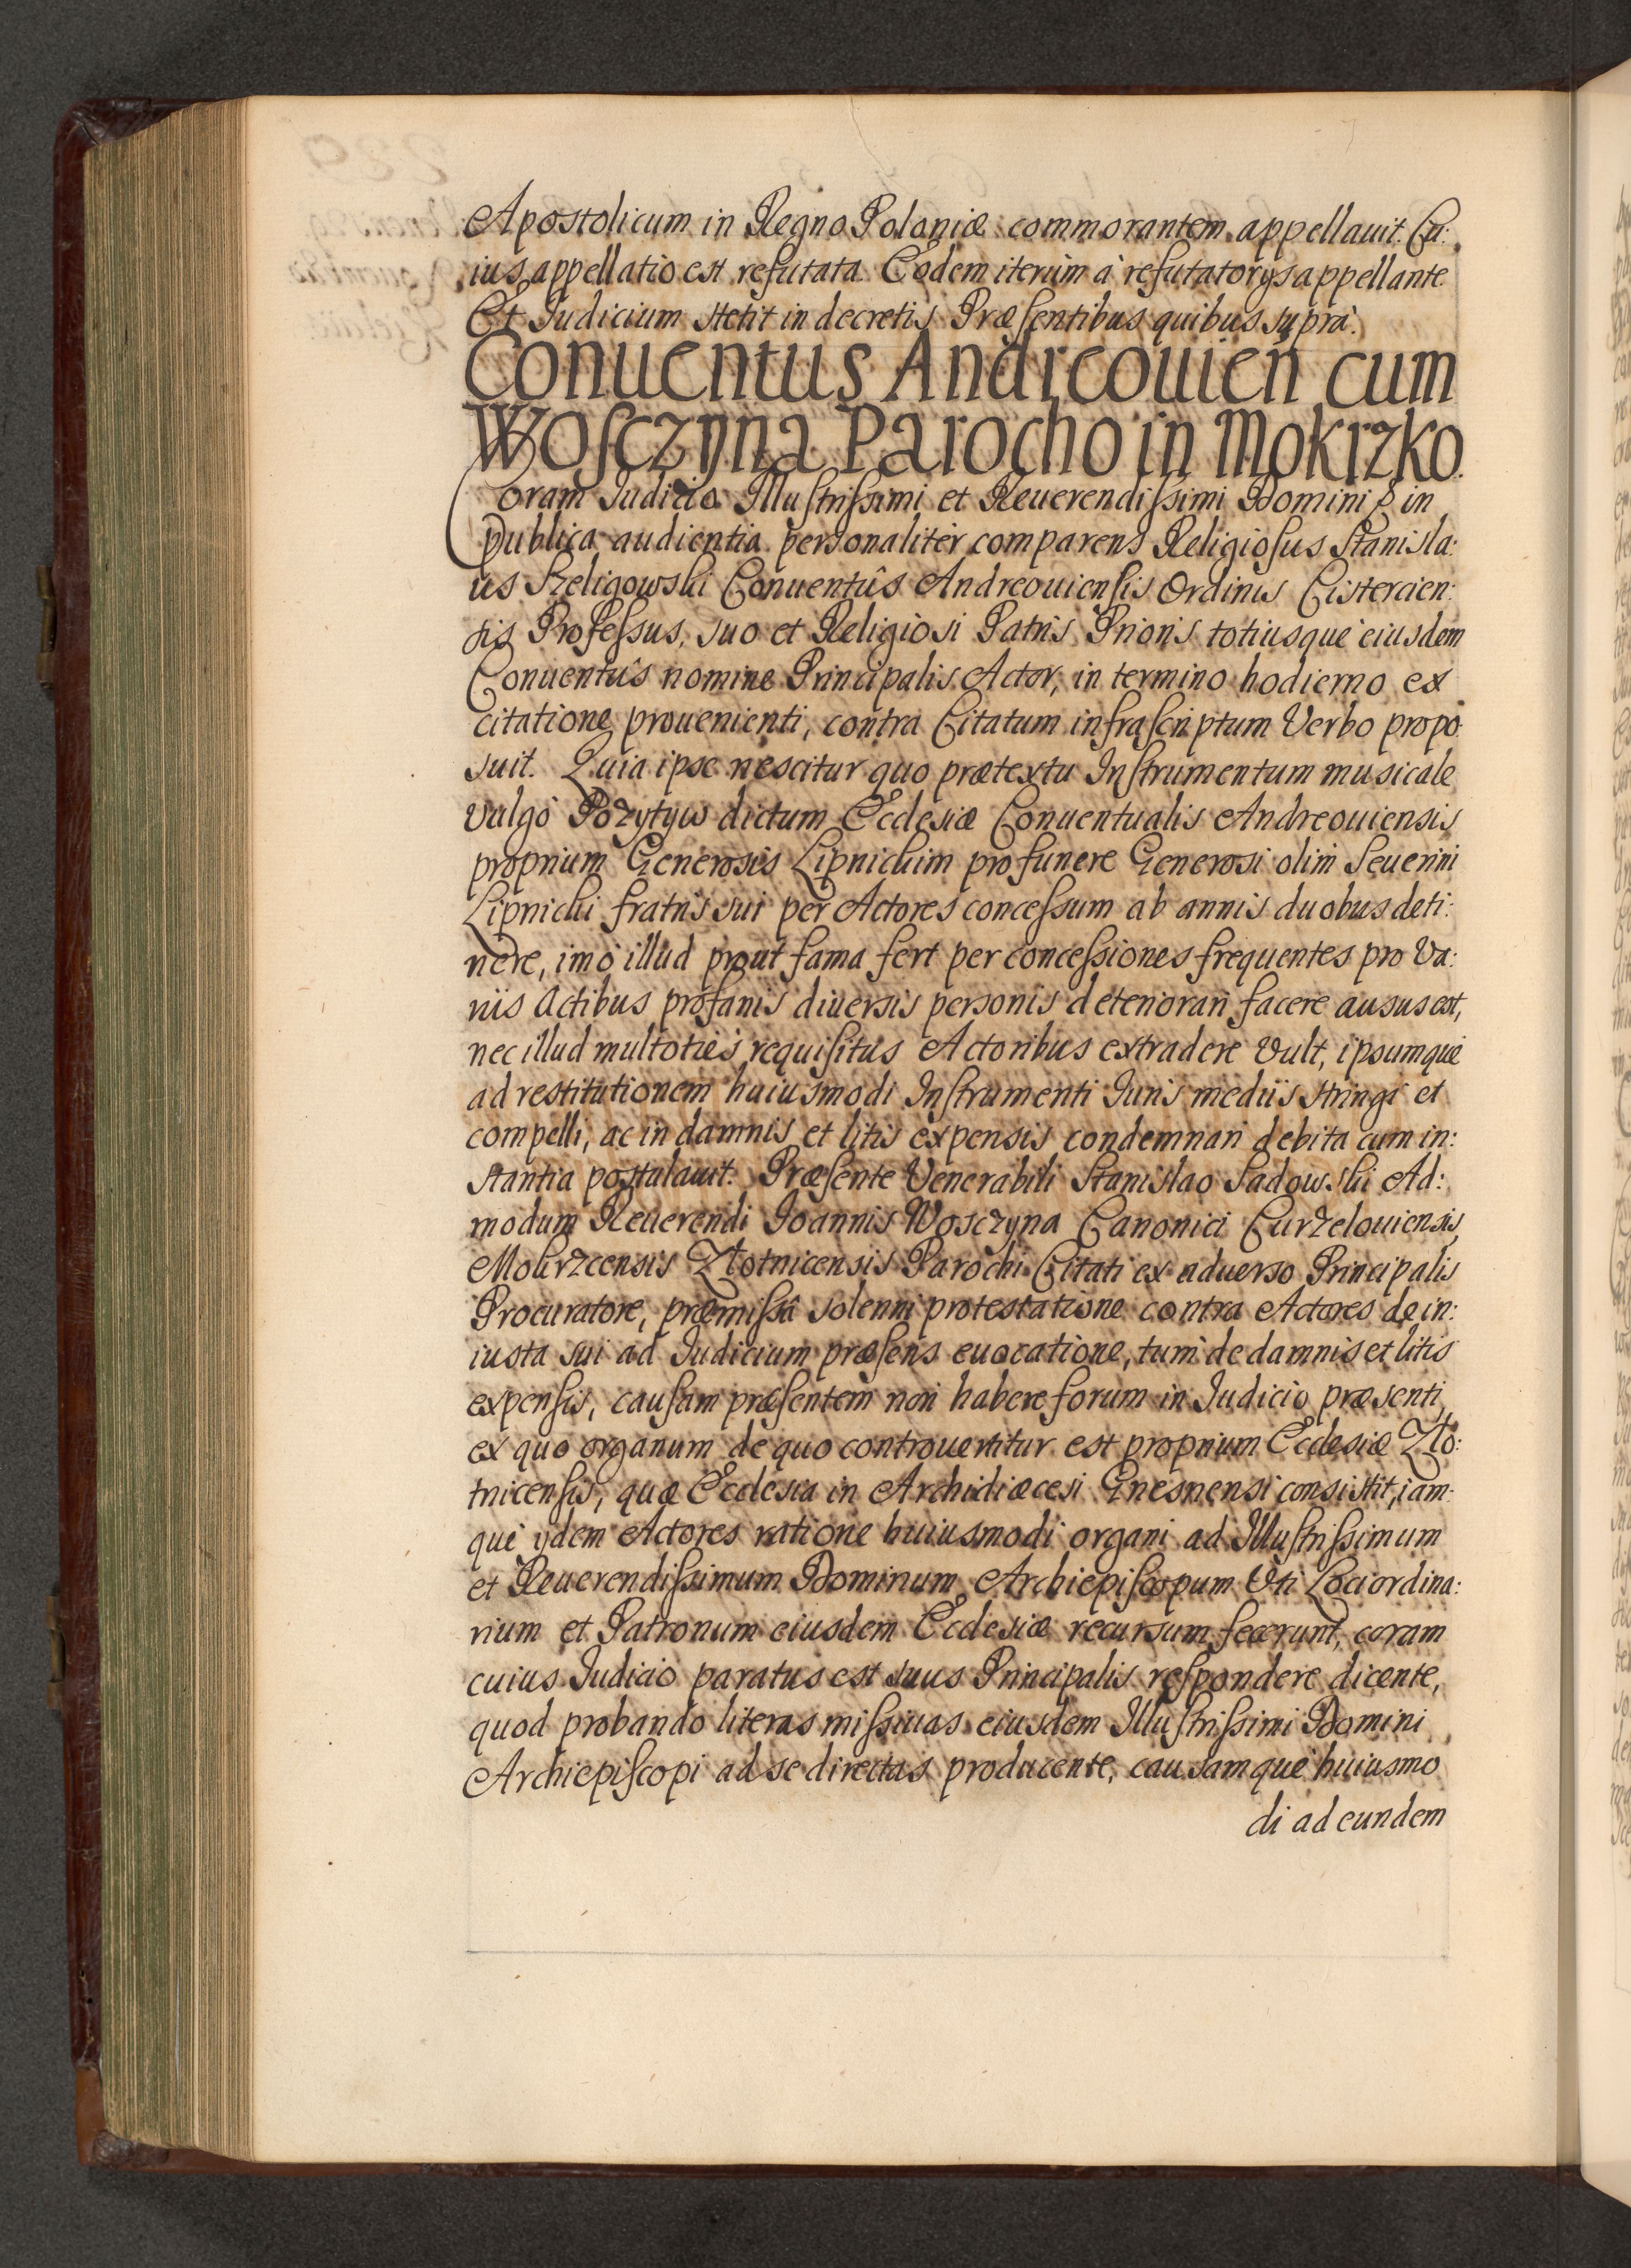 Apostolicum in Regno Poloniæ commorantem appellauit. Cu:
ius appellatio est refutata. Eodem iterùm à refutatorijs appellante.
Et Iudicium stetit in decretis Præsentibus quibus suprà.
Conuentus Andreouien cum
Wosczyna Parocho in Mokrzko.
Coram Iudicio Illustrissimi et Reuerendissimi Domini in
publica audientia personaliter comparens Religiosus Stanisla:
us Szeligowski Conuentûs Andreouiensis Ordinis Cistercien:
sis Professus, suo et Religiosi Patris Prioris totiusque eiusdem
Conuentûs nomine Principalis Actor, in termino hodierno ex
citatione prouenienti, contra Citatum infrascriptum Verbo propo:
suit. Quia ipse nescitur quo prætextu Instrumentum musicale
vulgò Pozytyw dictum Ecclesiæ Conuentualis Andreouiensis
proprium Generosis Lipnickim pro funere Generosi olim Seuerini
Lipnicki fratris sui per Actores concessum ab annis duobus deti:
nere, imò illud prout fama fert per concessiones frequentes pro Va:
riis Actibus profanis diuersis personis deteriorari facere ausus est,
nec illud multoties requisitus Actoribus extradere Vult, ipsumque
ad restitutionem huiusmodi Instrumenti Iuris mediis stringi et
compelli, ac in damnis et litis expensis condemnari debita cum in:
stantia postulauit. Præsente Venerabili Stanislao Sadowski Ad:
modum Reuerendi Ioannis Wosczyna Canonici Curzelouiensis,
Mokrzcensis Złotnicensis Parochi Citati ex aduerso Principalis
Procuratore, præmissâ solenni protestatione contra Actores de in:
iusta sui ad Iudicium præsens euocatione, tum de damnis et litis
expensis, causam præsentem non habere forum in Iudicio præsenti,
ex quo organum de quo controuertitur est proprium Ecclesiæ Zło:
tnicensis, quæ Ecclesia in Archidiæcesi Gnesnensi consistit, iam:
que ijdem Actores ratione huiusmodi organi ad Illustrissimum
et Reuerendissimum Dominum Archiepiscopum Vti Loci ordina:
rium et Patronum eiusdem Ecclesiæ recursum fecerunt, coram
cuius Iudicio paratus est suus Principalis respondere dicente,
quod probando literas missiuas eiusdem Illustrissimi Domini
Archiepiscopi ad se directas producente, causamque huiusmo
di ad eundem